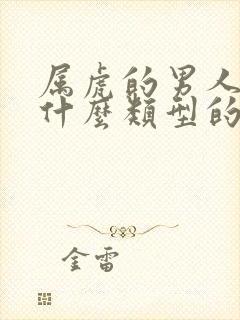 属虎的男人
什麼類型的
金雷